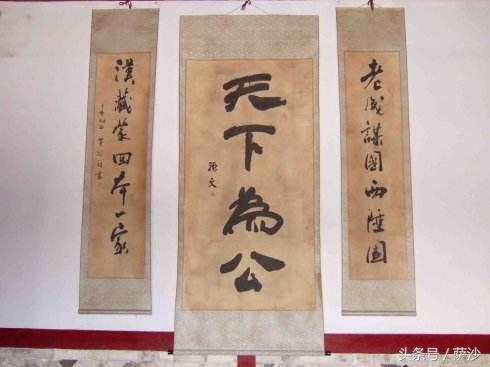 老成謀國西陲固
天下為公
孫文
漢藏蒙回本一家
头条号 / 萨沙